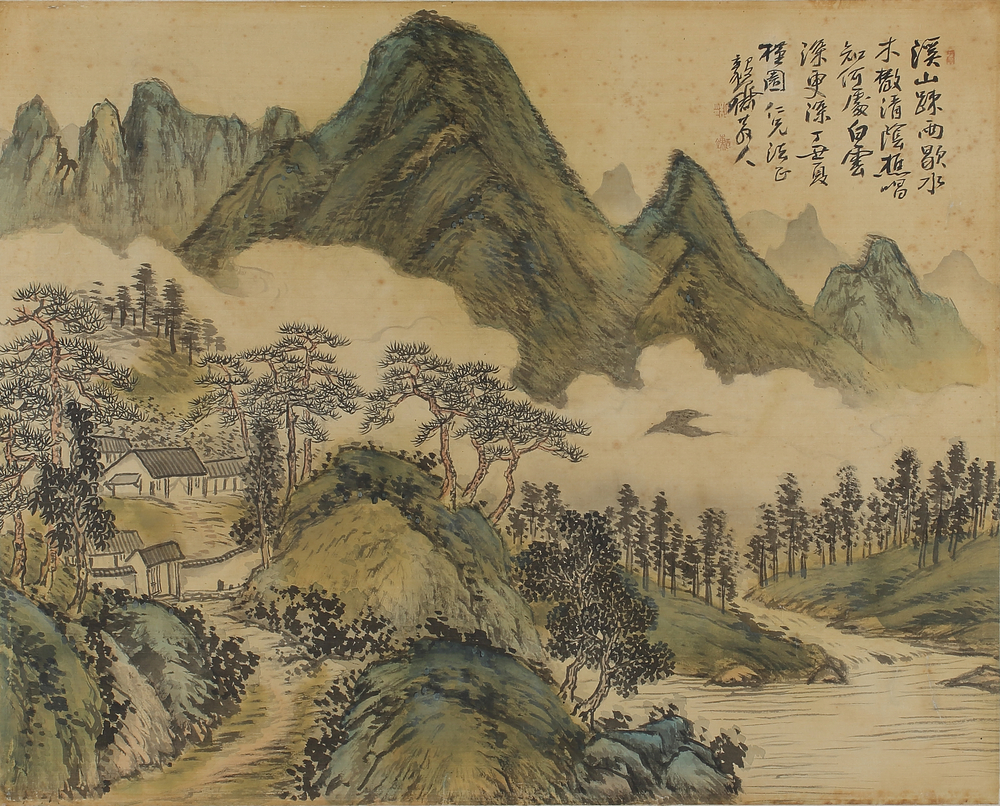 溪山踈雨歇水
木散清陰樵唱
知何處白雲
深更深丁丑夏
槿園仁兄法正
毅齋人